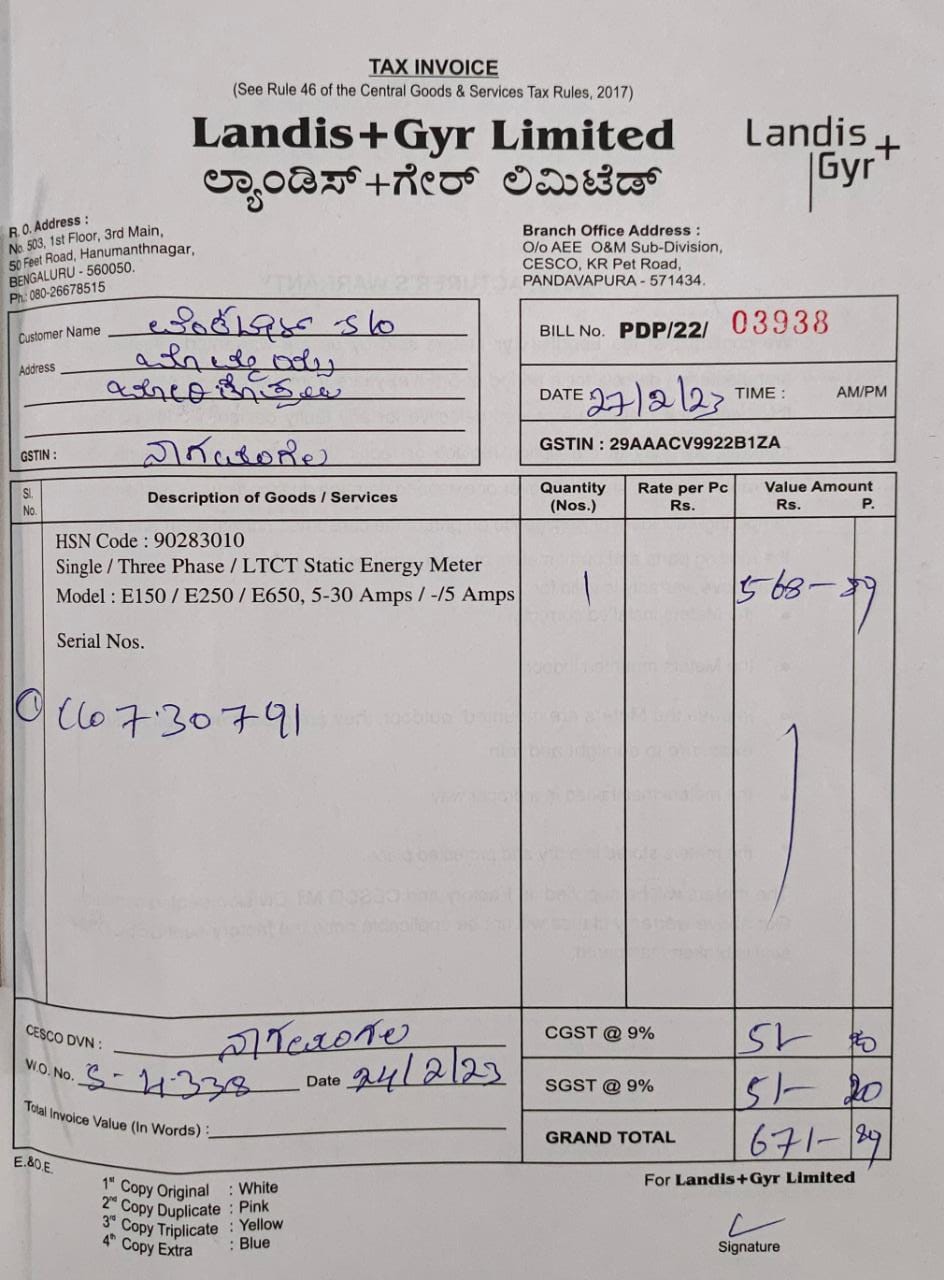 TAX INVOICE
(See Rule 46 of the Central Goods & Services Tax Rules, 2017)
Landis+Gyr Limited
Landis+
Gyr
ಲ್ಯಾಂಡಿಸ್+ಗೇರ್ ಲಿಮಿಟೆಡ್
R. O. Address :
No. 503, 1st Floor, 3rd Main,
50 Feet Road, Hanumanthnagar,
BENGALURU - 560050.
Ph.: 080-26678515
Branch Office Address :
O/o AEE O&M Sub-Division,
CESCO, KR Pet Road,
PANDAVAPURA - 571434.
Customer Name S/o
Address
GSTIN :
BILL No. PDP/22/ 03938
DATE 27/2/23 TIME : AM/PM
GSTIN : 29AAACV9922B1ZA
Sl. No. Description of Goods / Services Quantity (Nos.) Rate per Pc Rs. Value Amount Rs. P.
HSN Code : 90283010
Single / Three Phase / LTCT Static Energy Meter
Model : E150 / E250 / E650, 5-30 Amps / -/5 Amps 1 568-89
Serial Nos.
①
CESCO DVN :
CGST @ 9% 51-
W.O. No. Date 24/2/23
SGST @ 9% 51- 20
Total Invoice Value (In Words) :
GRAND TOTAL 671- 89
E.&O.E.
For Landis+Gyr Limited
1st Copy Original : White
2nd Copy Duplicate : Pink
3rd Copy Triplicate : Yellow
4th Copy Extra : Blue
Signature